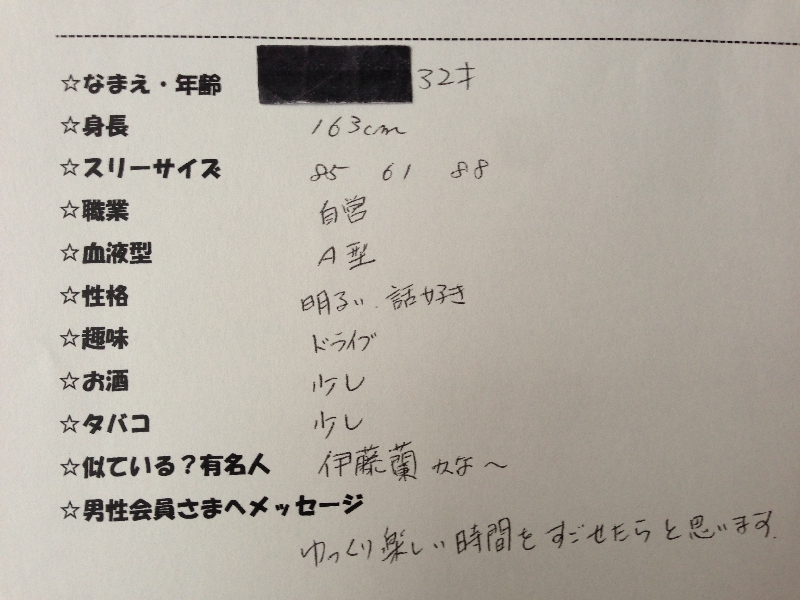 ☆なまえ・年齢 32才
☆身長 163cm
☆スリーサイズ 85 61 88
☆職業 自営
☆血液型 A型
☆性格 明るい、話好き
☆趣味 ドライブ
☆お酒 少し
☆タバコ 少し
☆似ている？有名人 伊藤蘭かな〜
☆男性会員さまへメッセージ
ゆっくり楽しい時間をすごせたらと思います。